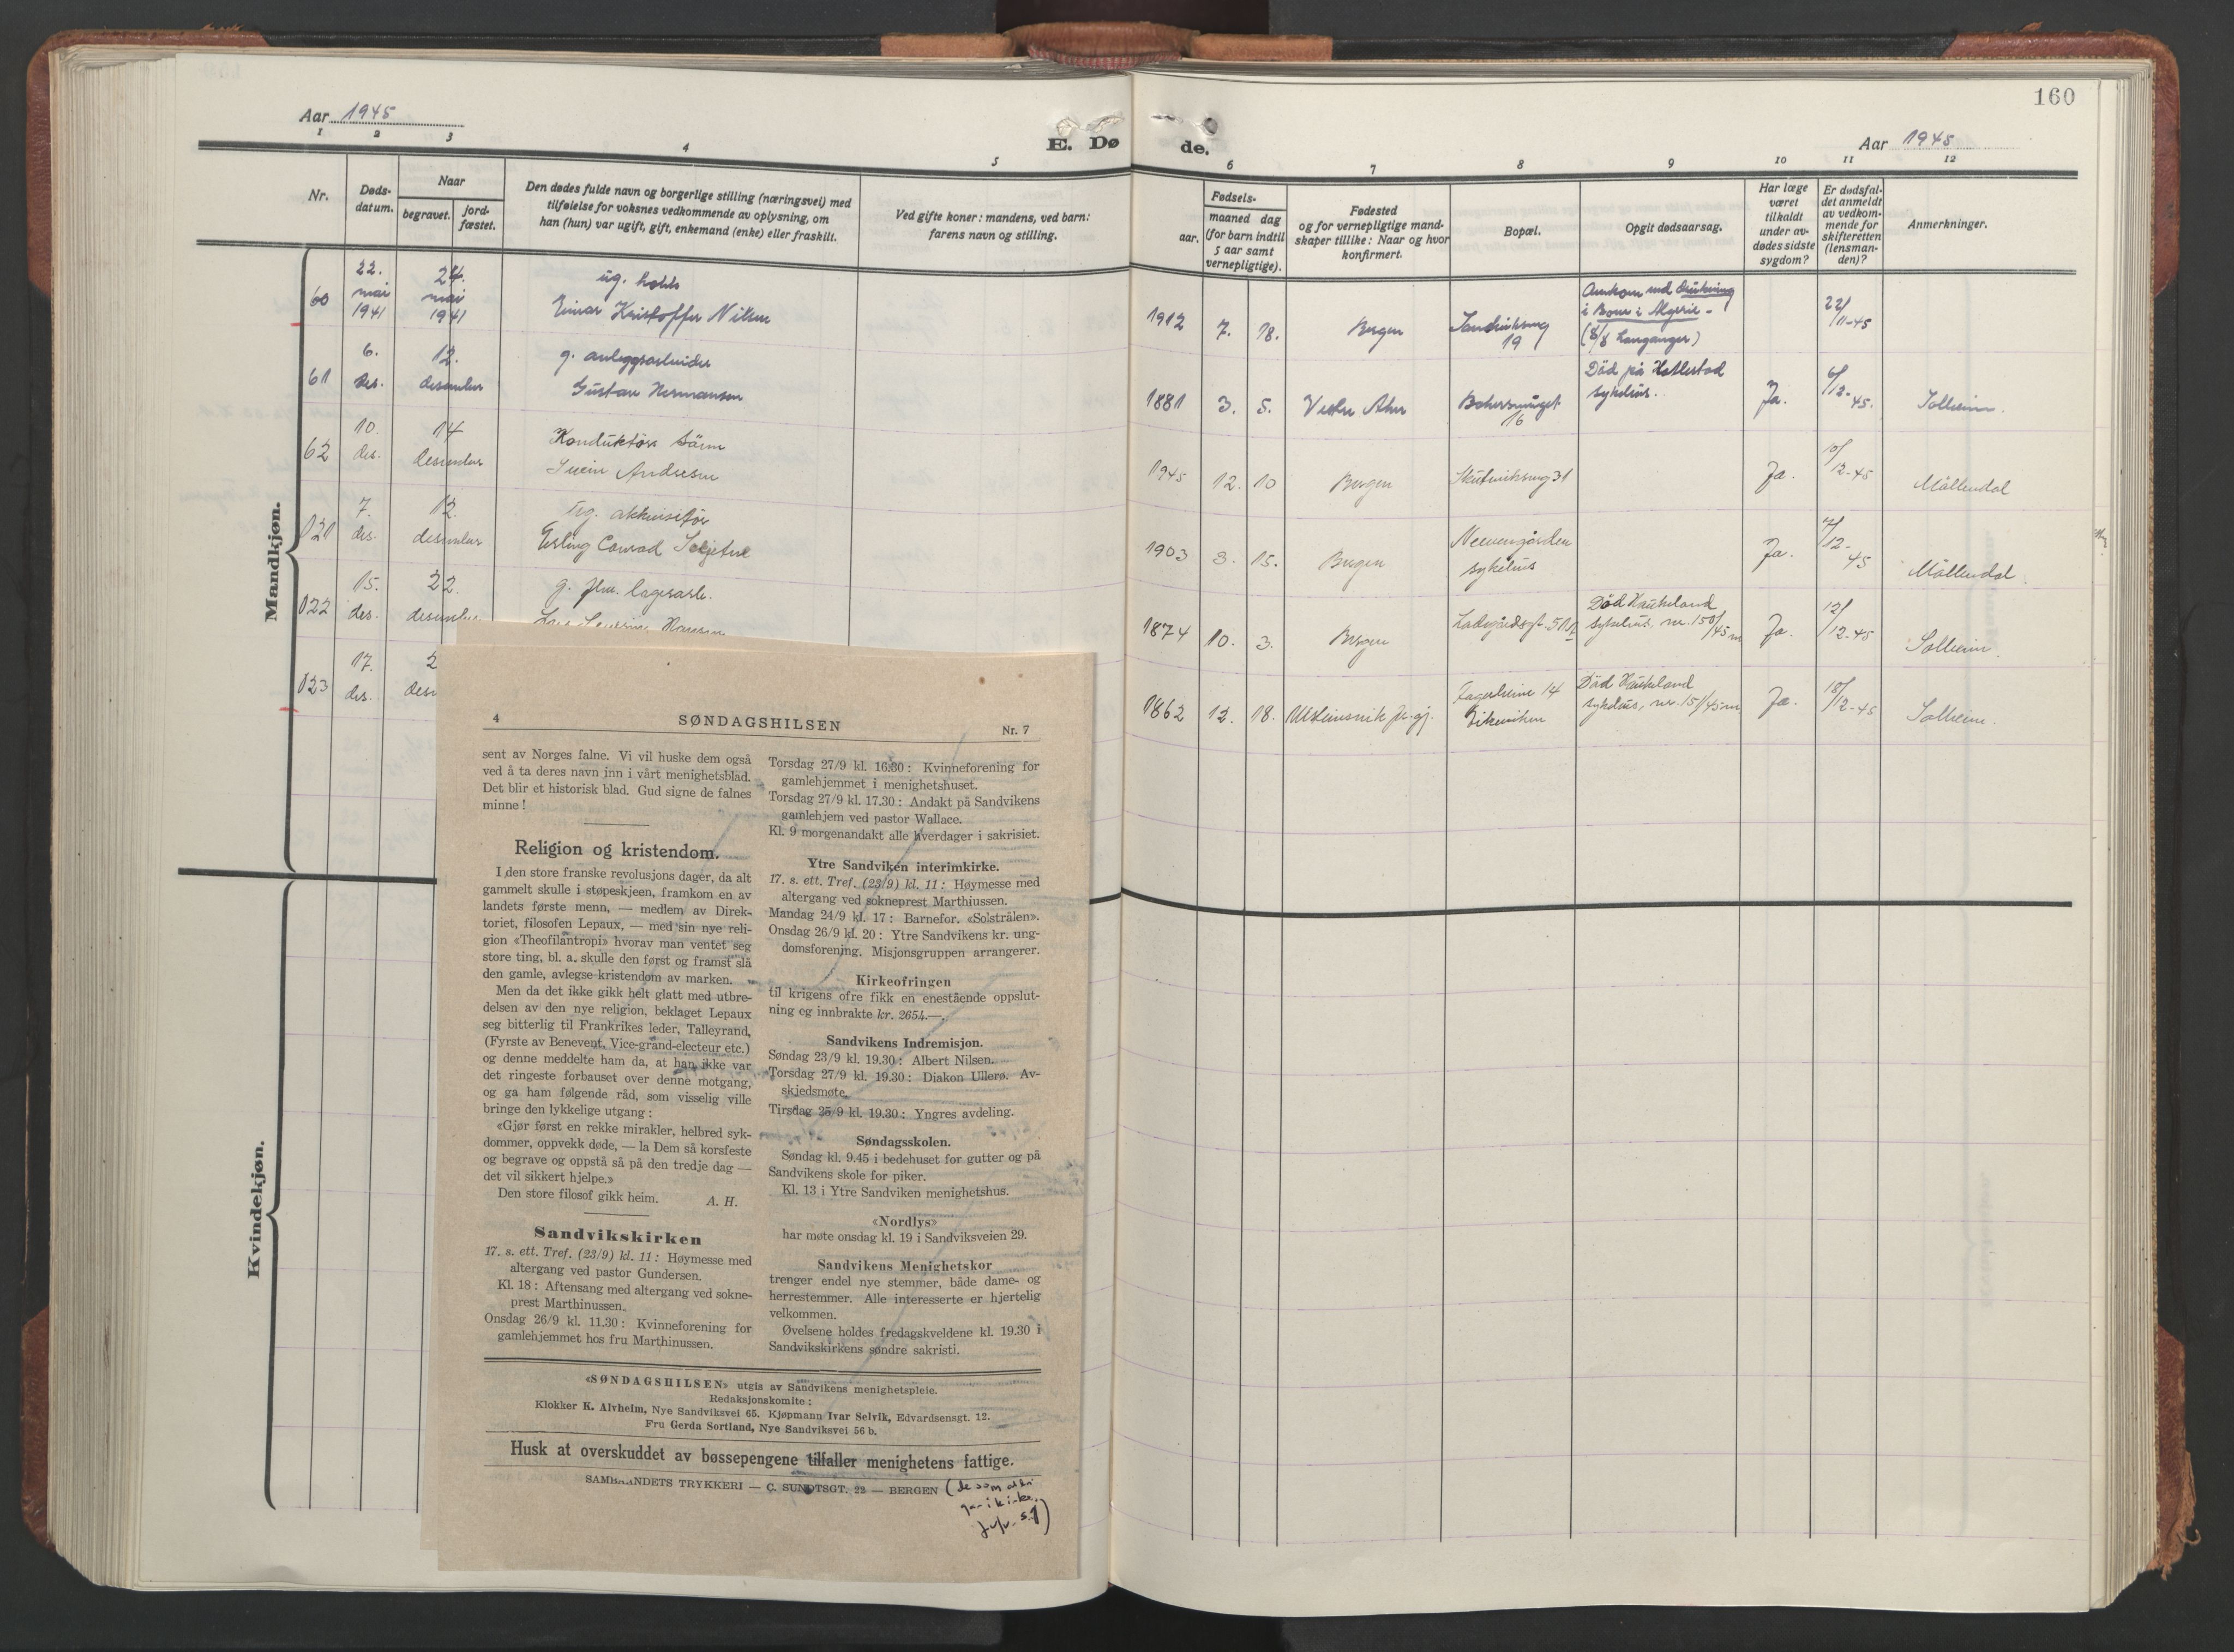 160
Aar 1945
E. Dø
de.
Aar 1945
1 2 3 4 5 6 7 8 9 10 11 12
Nr.
Døds-
datum.
Naar
begravet.
jord-
fæstet.
Den dødes fulde navn og borgerlige stilling (næringsvei) med
tilføielse for voksnes vedkommende av oplysning, om
han (hun) var ugift, gift, enkemand (enke) eller fraskilt.
Ved gifte koner: mandens, ved barn:
farens navn og stilling.
Fødsels-
aar.
maaned dag
(for barn indtil
5 aar samt
vernepligtige).
Fødested
og for vernepligtige mand-
skaper tillike: Naar og hvor
konfirmert.
Bopæl.
Opgit dødsaarsag.
Har læge
været
tilkaldt
under av-
dødes sidste
sygdom?
Er dødsfal-
det anmeldt
av vedkom-
mende for
skifteretten
(lensman-
den)?
Anmerkninger.
Mandkjøn.
60
22.
mai
1941
24.
mai
1941
ug.
Einar Kristoffer Nilsen
1912 7. 18. Bergen
19
i Bone i Algerie -
22/11-45
61
6.
des.
12.
desember
g. anleggsarbeider
Gustav Hermansen
1881 3. 5. Vestre Aker
16
Död på
sykehus.
Ja.
6/12-45.
Solheim.
62
10.
des.
14
desember
Konduktör
Svein Andresen
1945 12. 10 Bergen
Skuteviksveg 31
Ja.
10/12-45
Möllendal
121
7.
des.
12.
desember
ug. akkvisitör
Erling Conrad
1903 3. 15. Bergen
Neevengården
sykehus
Ja.
7/12-45
Möllendal.
122
15.
des.
22.
desember
g. fhv. lagerarb.
1874 10. 3. Bergen
Död Haukeland
sykehus, nr. 150/45 m
Ja.
12-45
Solheim.
123
17.
des.
2
des
1862 12. 18.
14
Död Haukeland
sykehus, nr. 151/45 m
Ja.
18/12-45
Solheim.
Kvindekjøn.
4 SØNDAGSHILSEN Nr. 7
sent av Norges falne. Vi vil huske dem også
ved å ta deres navn inn i vårt menighetsblad.
Det blir et historisk blad. Gud signe de falnes
minne!
Religion og kristendom.
I den store franske revolusjons dager, da alt
gammelt skulle i støpeskjeen, framkom en av
landets første menn, — medlem av Direk-
toriet, filosofen Lepaux, — med sin nye reli-
gion «Theofilantropi» hvorav man ventet seg
store ting, bl. a. skulle den først og framst slå
den gamle, avlegse kristendom av marken.
Men da det ikke gikk helt glatt med utbre-
delsen av den nye religion, beklaget Lepaux
seg bitterlig til Frankrikes leder, Talleyrand,
(Fyrste av Benevent, Vice-grand-electeur etc.)
og denne meddelte ham da, at han ikke var
det ringeste forbauset over denne motgang,
og ga ham følgende råd, som visselig ville
bringe den lykkelige utgang:
«Gjør først en rekke mirakler, helbred syk-
dommer, oppvekk døde, — la Dem så korsfeste
og begrave og oppstå så på den tredje dag —
det vil sikkert hjelpe.»
Den store filosof gikk heim. A. H.
Sandvikskirken
17. s. ett. Tref. (23/9) kl. 11: Høymesse med
altergang ved pastor Gundersen.
Kl. 18: Aftensang med altergang ved sokne-
prest Marthinussen.
Onsdag 26/9 kl. 11.30: Kvinneforening for
gamlehjemmet hos fru Marthinussen.
Torsdag 27/9 kl. 16.30: Kvinneforening for
gamlehjemmet i menighetshuset.
Torsdag 27/9 kl. 17.30: Andakt på Sandvikens
gamlehjem ved pastor Wallace.
Kl. 9 morgenandakt alle hverdager i sakrisiet.
Ytre Sandviken interimkirke.
17. s. ett. Tref. (23/9) kl. 11: Høymesse med
altergang ved sokneprest Marthiussen.
Mandag 24/9 kl. 17: Barnefor. «Solstrålen».
Onsdag 26/9 kl. 20: Ytre Sandvikens kr. ung-
domsforening. Misjonsgruppen arrangerer.
Kirkeofringen
til krigens ofre fikk en enestående oppslut-
ning og innbrakte kr. 2654.—.
Sandvikens Indremisjon.
Søndag 23/9 kl. 19.30: Albert Nilsen.
Torsdag 27/9 kl. 19.30: Diakon Ullerø. Av-
skjedsmøte.
Tirsdag 25/9 kl. 19.30: Yngres avdeling.
Søndagsskolen.
Søndag kl. 9.45 i bedehuset for gutter og på
Sandvikens skole for piker.
Kl. 13 i Ytre Sandviken menighetshus.
«Nordlys»
har møte onsdag kl. 19 i Sandviksveien 29.
Sandvikens Menighetskor
trenger endel nye stemmer, både dame- og
herrestemmer. Alle interesserte er hjertelig
velkommen.
Øvelsene holdes fredagskveldene kl. 19.30 i
Sandvikskirkens søndre sakristi.
«SØNDAGSHILSEN» utgis av Sandvikens menighetspleie.
Redaksjonskomite:
Klokker K. Alvheim, Nye Sandviksvei 65. Kjøpmann Ivar Selvik, Edvardsensgt. 12.
Fru Gerda Sortland, Nye Sandviksvei 56 b.
Husk at overskuddet av bøssepengene tilfaller menighetens fattige.
SAMBANDETS TRYKKERI — C. SUNDTSGT. 22 — BERGEN
(de som